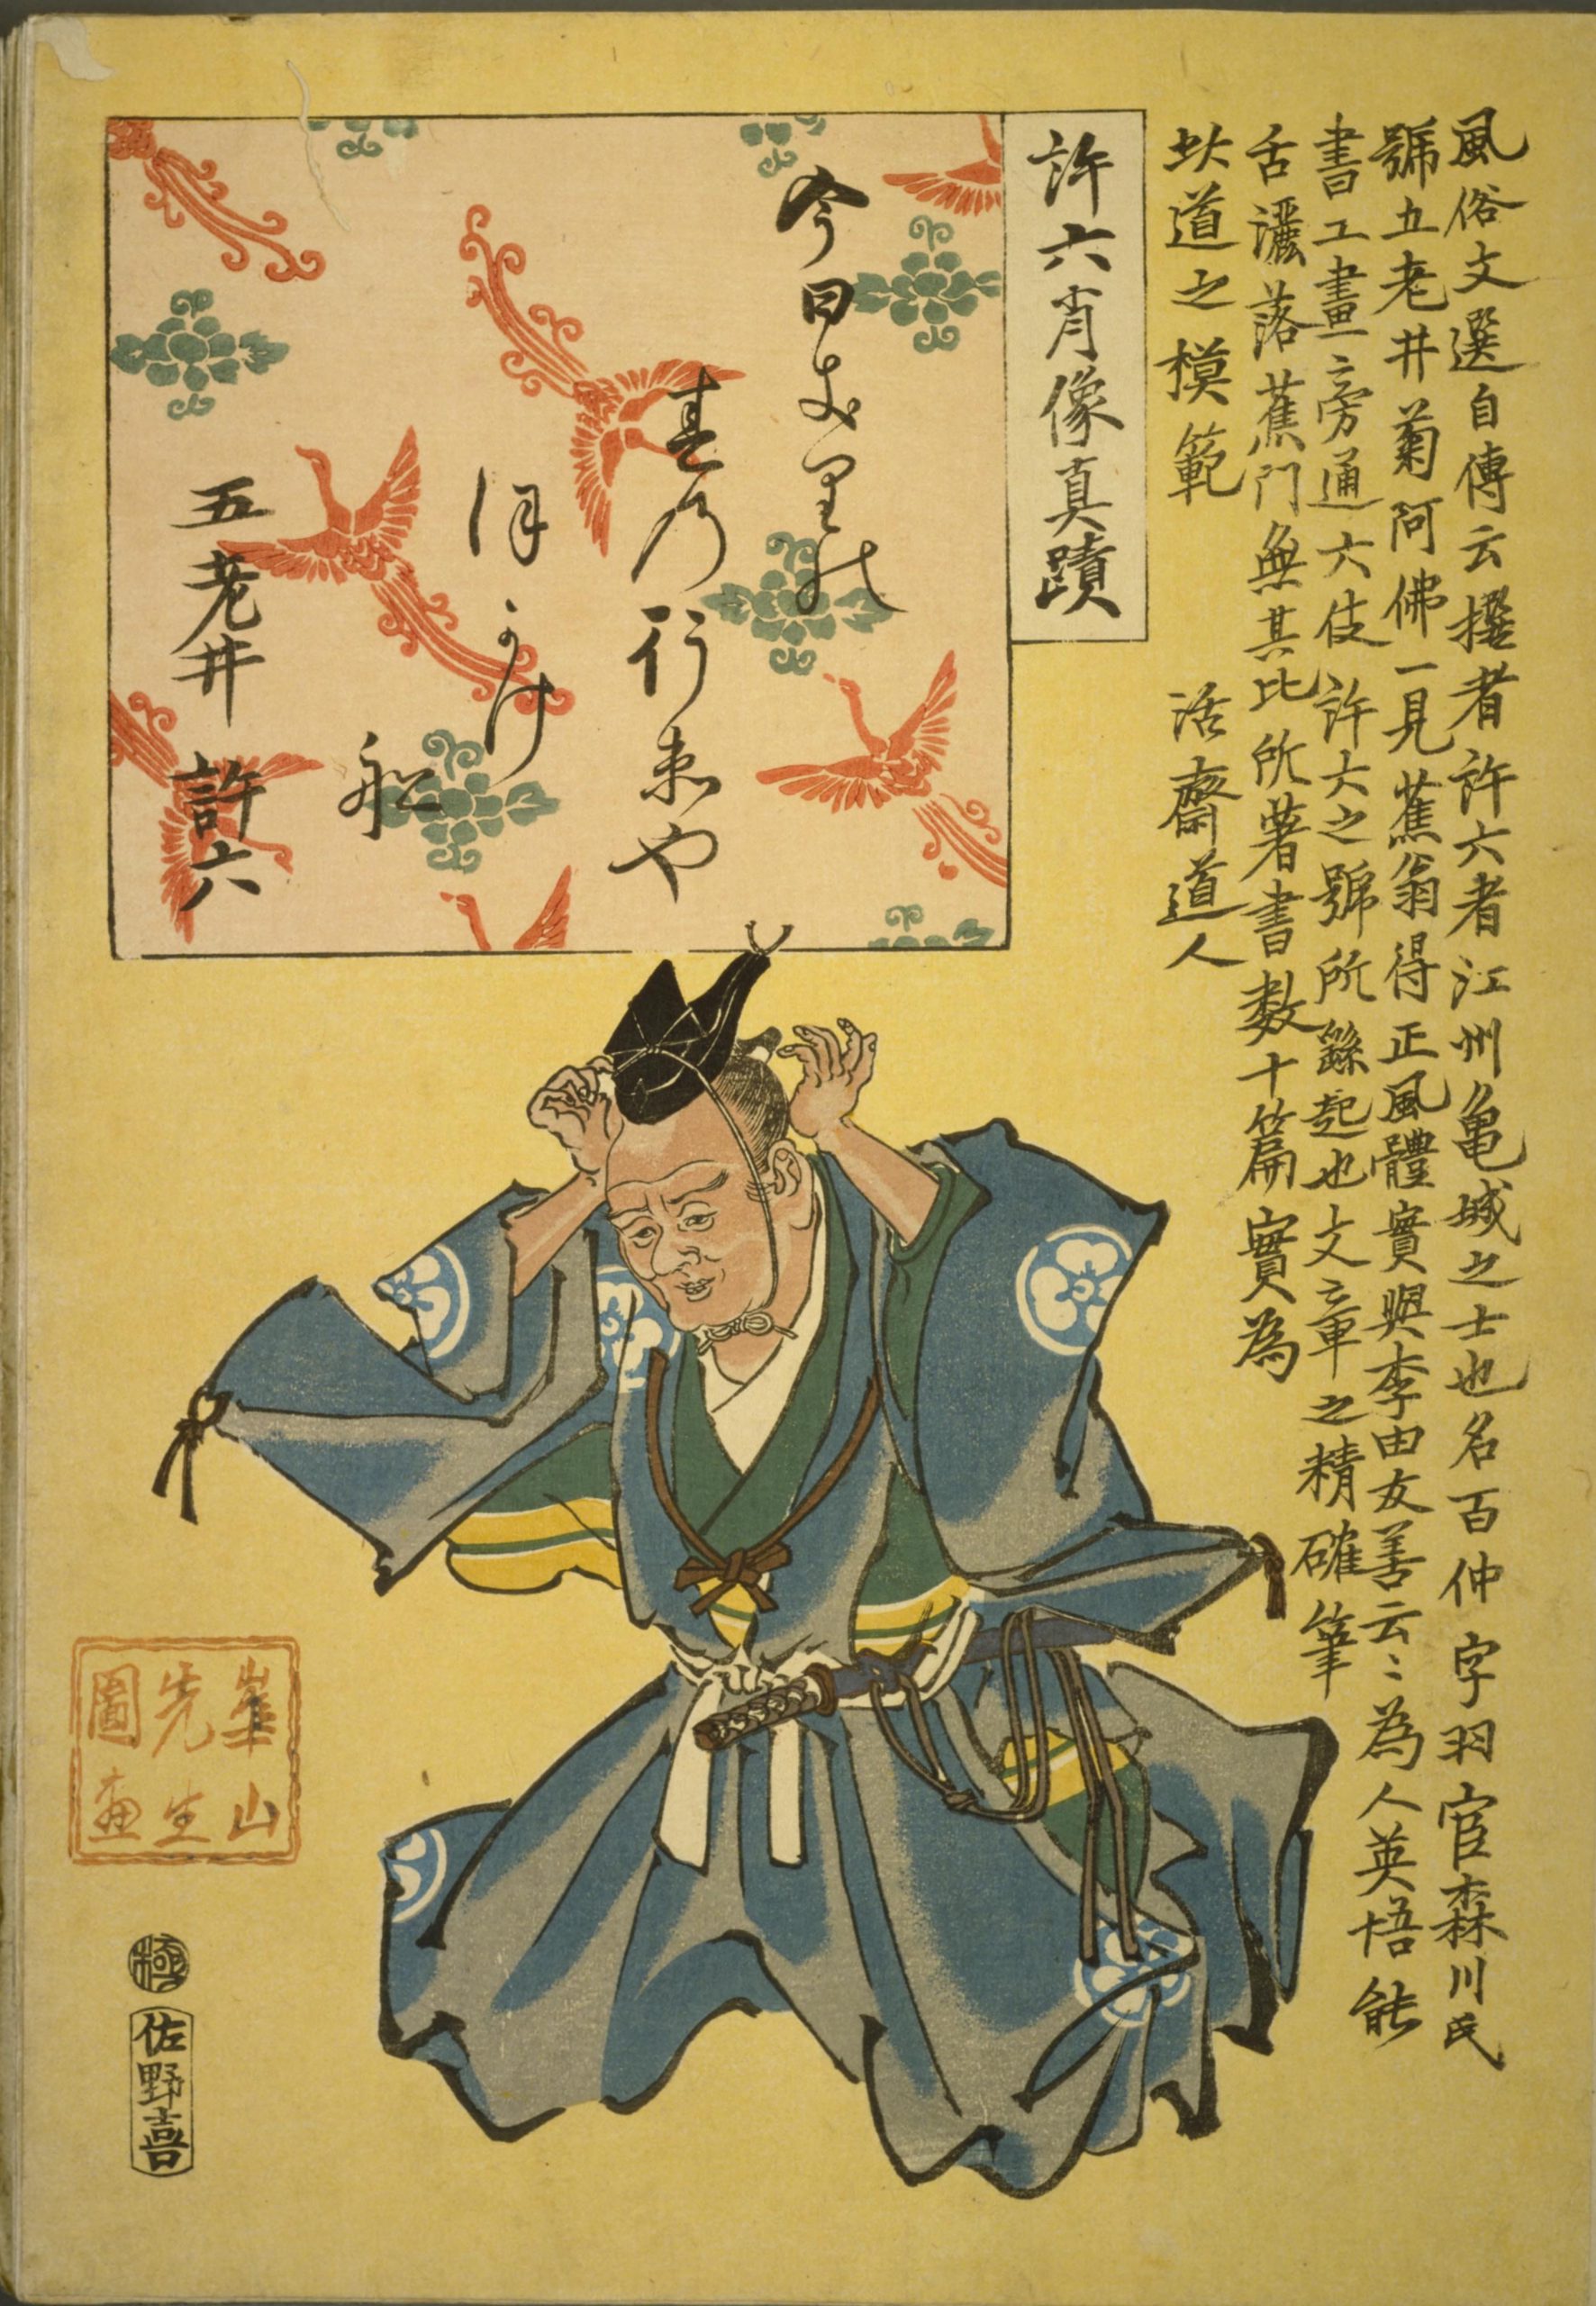 風俗文選自傳云撰者許六者江州亀城之士也名百仲字羽官森川氏
號五老井菊阿佛一見蕉翁得正風體實與李由友善云〻為人英悟能
書工畫旁通六伎許六之號所繇起也文章之精確筆
舌灑落蕉門無其比所著書数十篇實為
此道之模範
活齋道人
許六肖像真蹟
今日
春乃行未や
ほかけ
舩
五老井 許六
崋山
先生
圖画
極
佐野喜